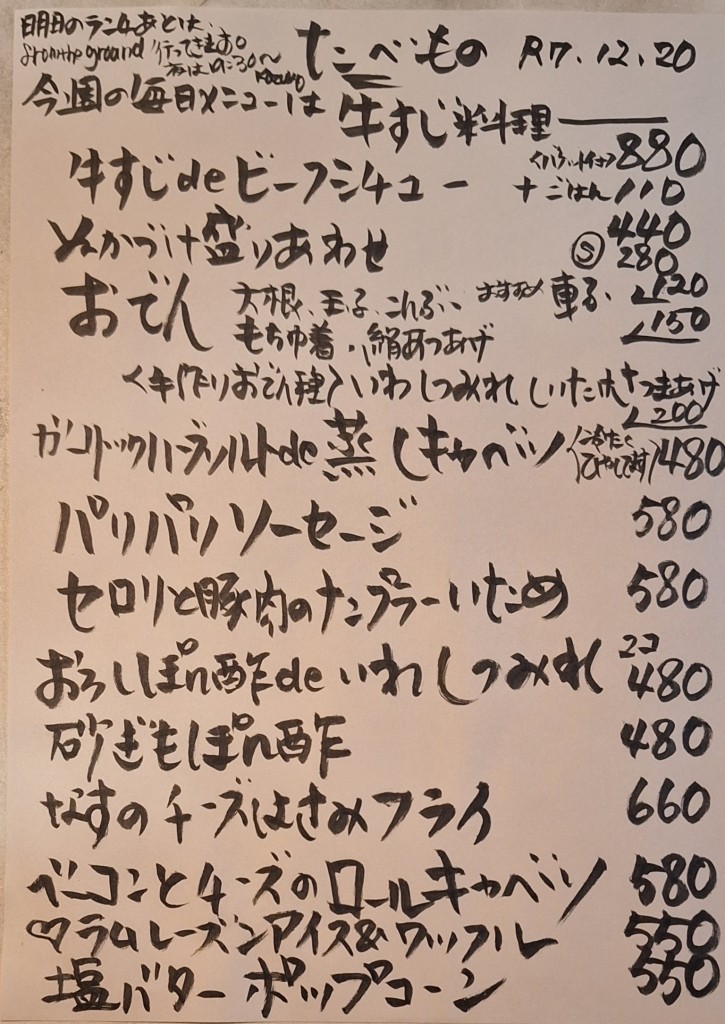 明日のランチあとは、
fromthe ground 行ってきます。
夜は19:30〜
たべもの R7.12.20
今週の毎日メニューは 牛すじ料理
牛すじdeビーフシチュー 〈バゲット付き〉880
＋ごはん 110
ぬかづけ盛りあわせ 440
Ⓢ 280
おでん 大根、玉子、こんぶ、 おすすめ 車ふ、 120
もち巾着・絹あつあげ 150
〈手作りおでん種〉いわしつみれ しいたけさつまあげ
200
ガーリックハーブソルトde蒸しキャベツ 〈冷たくひやしてます〉 480
パリパリソーセージ 580
セロリと豚肉のナンプラーいため 580
おろしぽn酢deいわしつみれ 2コ 480
砂ぎもぽn酢 480
なすのチーズはさみフライ 660
ベーコンとチーズのロールキャベツ 580
♡ラムレーズンアイス&ワッフル 550
塩バターポップコーン 550